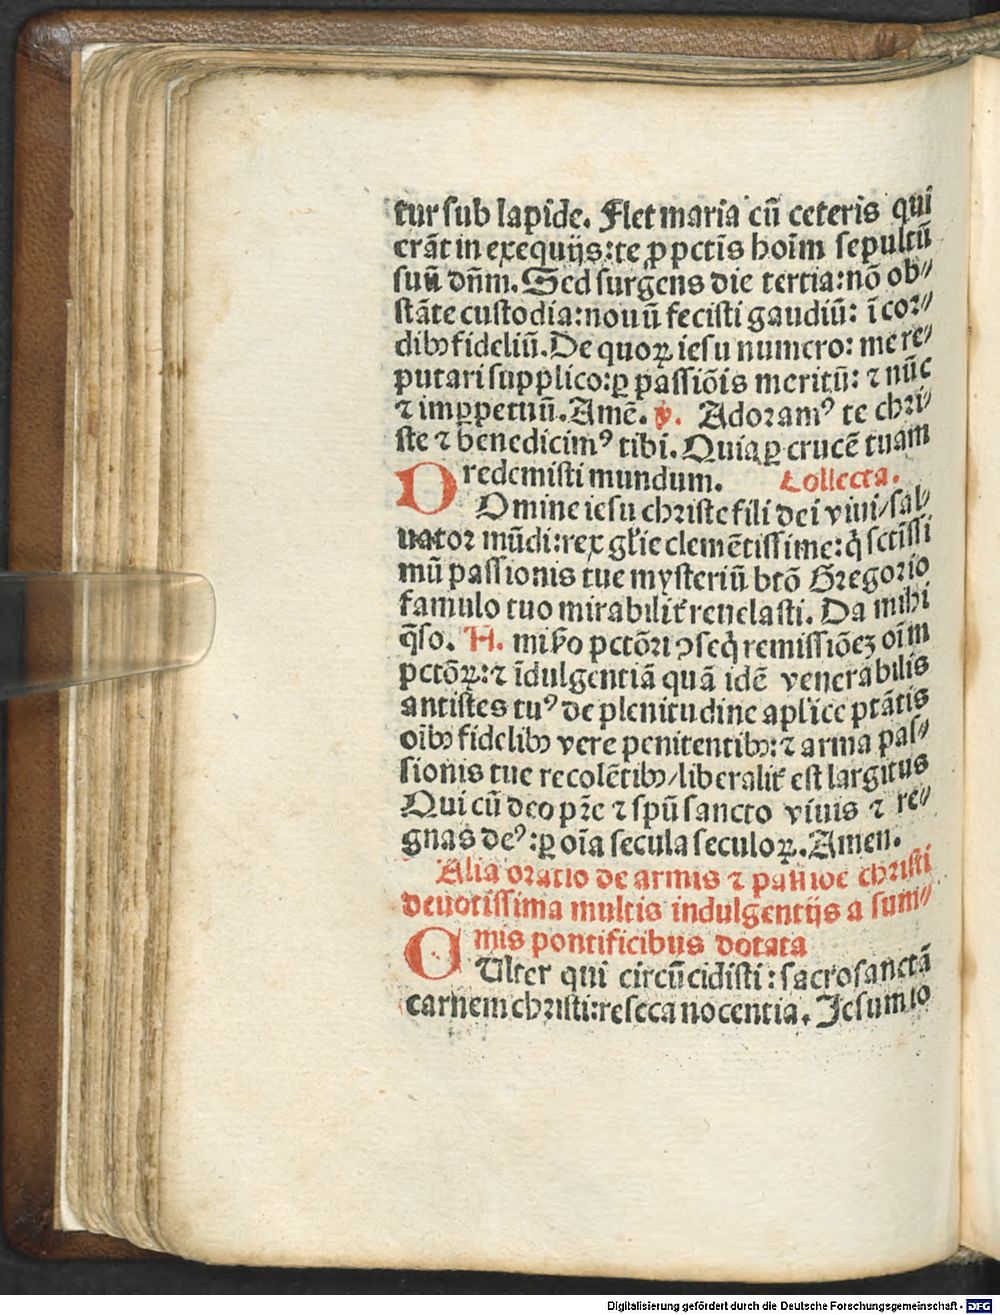 tur sub lapide. Flet maria cū ceteris qui
erāt in exequijs: te ꝓ pctīs hoīm sepultū
suū dn̄m. Sed surgens die tertia: nō ob⸗
stāte custodia: nouū fecisti gaudiū: ī cor⸗
dibꝰ fideliū. De quoꝝ iesu numero: me re⸗
putari supplico: ꝑ passiōis meritū: ⁊ nūc
⁊ imꝑpetuū. Amē. ℣. Adoramꝰ te chri⸗
ste ⁊ benedicimꝰ tibi. Quia ꝑ crucē tuam
redemisti mundum. Collecta.
DOmine iesu christe fili dei viui/sal⸗
uator mūdi: rex gl'ie clemētissime: q̇ sctīssi
mū passionis tue mysteriū btō Gregorio
famulo tuo mirabilit' reuelasti. Da mihi
q̄so. N. mis̄o pctōri ꝯseq̇ remissiōeꝫ oīm
pctōꝝ: ⁊ īdulgentiā quā idē venerabilis
antistes tuꝰ de plenitudine apl'ice ptātis
oībꝰ fidelibꝰ vere penitentibꝰ: ⁊ arma pas⸗
sionis tue recolētibꝰ/liberalit' est largitus
Qui cū deo pr̄e ⁊ spū sancto viuis ⁊ re⸗
gnas deꝰ: ꝑ oīa secula seculoꝝ. Amen.
Alia oratio de armis ⁊ passiōe christi
deuotissima multis indulgentijs a sum⸗
mis pontificibus dotata
CUlter qui circūcidisti: sacrosanctā
carnem christi: reseca nocentia. Jesum io
Digitalisierung gefördert durch die Deutsche Forschungsgemeinschaft - DFG